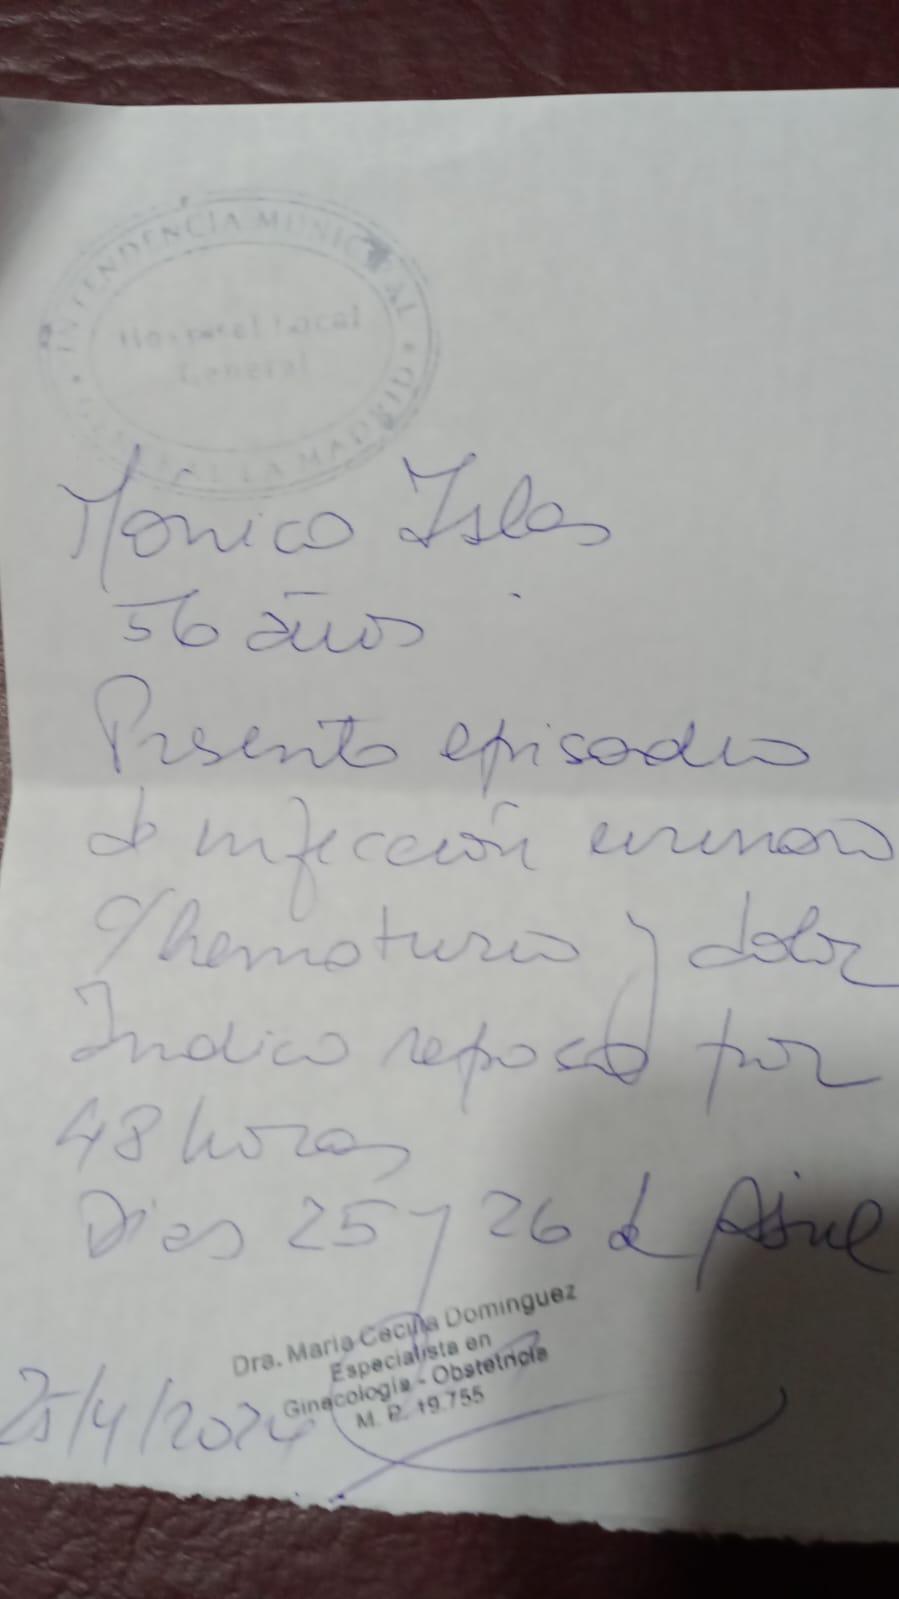 INTENDENCIA MUNICIPAL
Hospital Local
General
GENERAL LA MADRID
Mónica Islas
56 años
Presento episodio
de infección urinaria
c/hematuria y dolor
Indico reposo por
48 horas
Dias 25 y 26 de Abril
Dra. Maria Cecilia Dominguez
Especialista en
Ginecología - Obstetricia
M. P. 19.755
25/4/2024